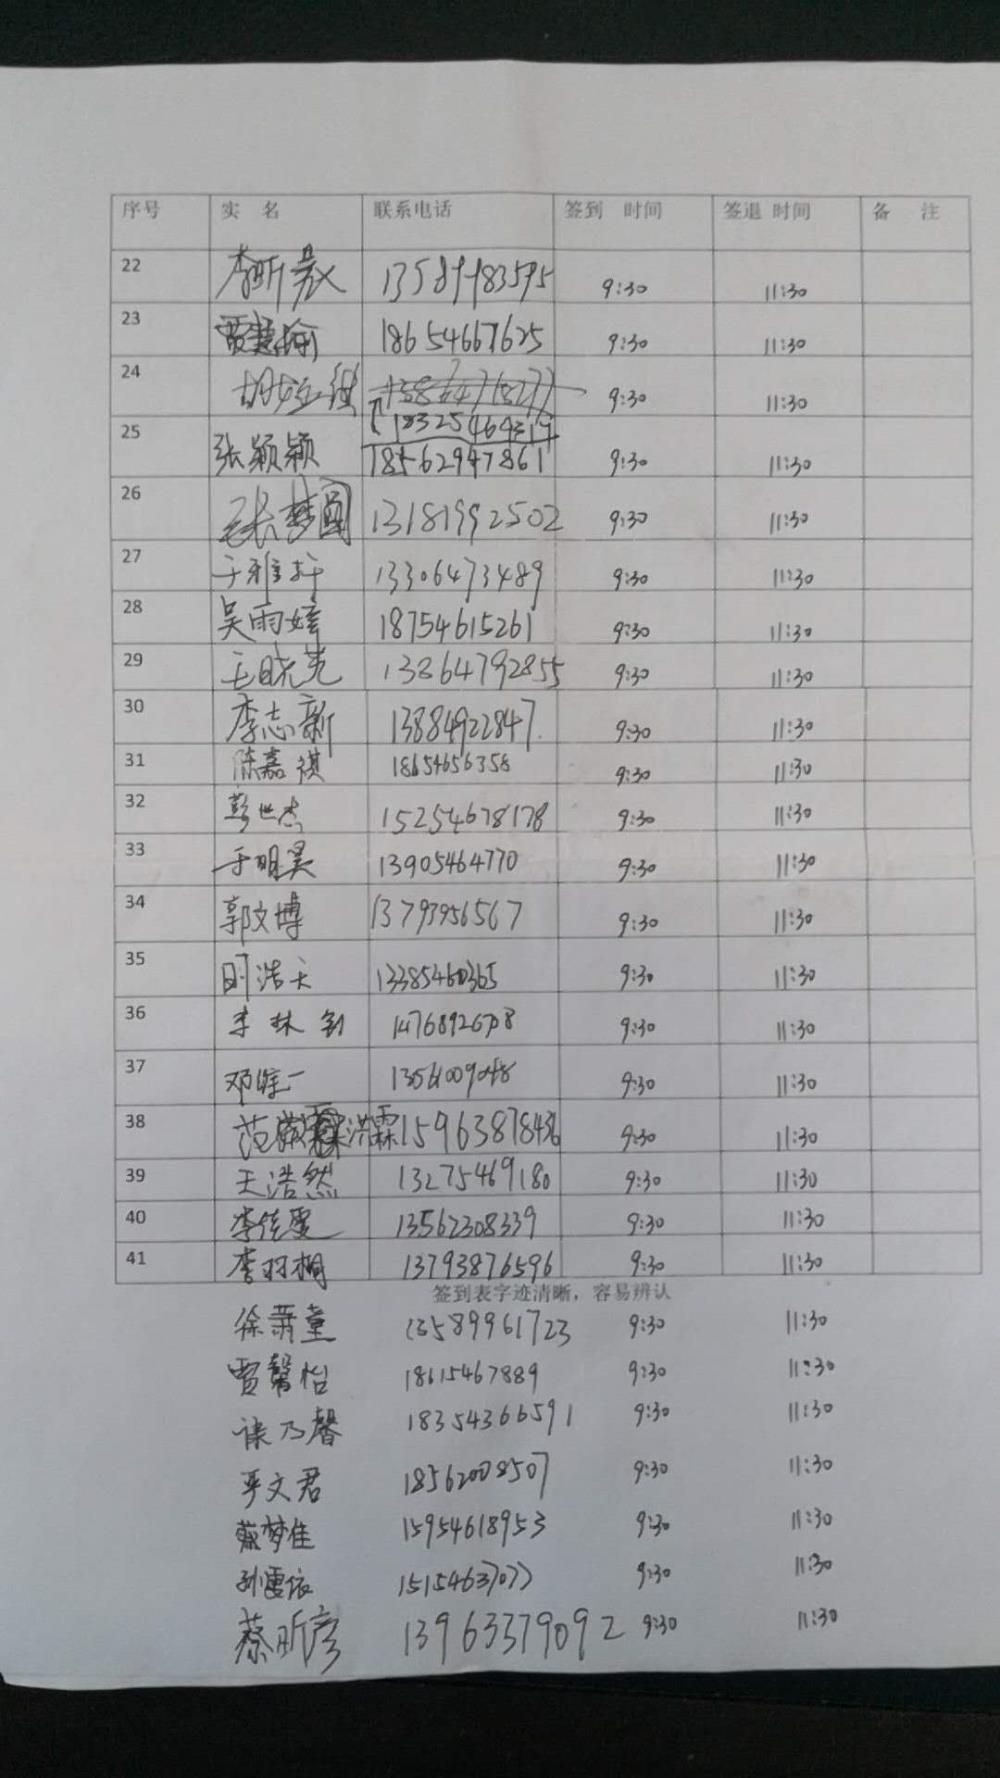 序号 实 名 联系电话 签到 时间 签退 时间 备 注
22 李昕 9:30 11:30
23 18654667625 9:30 11:30
24 胡 18325464319 9:30 11:30
25 张颖颖 18562947861 9:30 11:30
26 张梦圆 13181992502 9:30 11:30
27 于雅轩 13306473489 9:30 11:30
28 吴雨婷 18754615261 9:30 11:30
29 王晓艺 13864792855 9:30 11:30
30 李志新 13884922847 9:30 11:30
31 陈嘉祺 18654656358 9:30 11:30
32 彭世杰 15254678178 9:30 11:30
33 于明昊 13905464770 9:30 11:30
34 郭文博 13793956567 9:30 11:30
35 时浩天 13385460365 9:30 11:30
36 李林钊 9:30 11:30
37 邓唯一 9:30 11:30
38 范洪霖 9:30 11:30
39 王浩然 13275469180 9:30 11:30
40 李佳雯 13562308339 9:30 11:30
41 李羽桐 13793876596 9:30 11:30
签到表字迹清晰，容易辨认
徐萧童 13589961723 9:30 11:30
贾馨怡 18615467889 9:30 11:30
乃馨 18354366591 9:30 11:30
文君 18562008507 9:30 11:30
蔡梦佳 15954618953 9:30 11:30
孙雯依 15154637077 9:30 11:30
蔡昕彦 13963379092 9:30 11:30